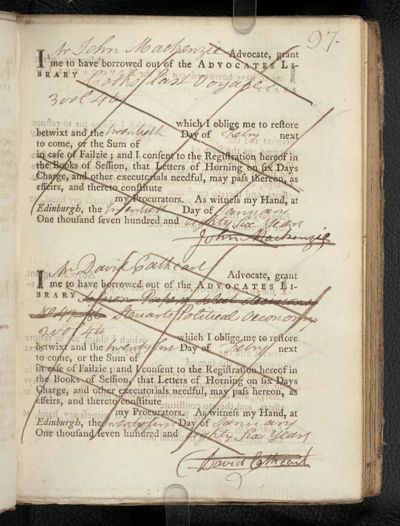 97.
I Mr John Mackenzie Advocate, grant
me to have borrowed out of the ADVOCATES LI-
BRARY Cooks last Voyage
3 vol 4to
which I oblige me to restore
betwixt and the twentieth Day of Febry next
to come, or the Sum of
in case of Failzie; and I consent to the Registration hereof in
the Books of Session, that Letters of Horning on six Days
Charge, and other executorials needful, may pass thereon, as
effeirs, and thereto constitute
my Procurators. As witness my Hand, at
Edinburgh, the twentieth Day of January
One thousand seven hundred and eighty six years
John Mackenzie
I Mr David Cathcart Advocate, grant
me to have borrowed out of the ADVOCATES LI-
BRARY Session Papers
Stewarts Political Oeconomy
2 vol 4to
which I oblige me to restore
betwixt and the Day of Febry next
to come, or the Sum of
in case of Failzie; and I consent to the Registration hereof in
the Books of Session, that Letters of Horning on six Days
Charge, and other executorials needful, may pass thereon, as
effeirs, and thereto constitute
my Procurators. As witness my Hand, at
Edinburgh, the Day of January
One thousand seven hundred and Eighty Six Years
David Cathcart